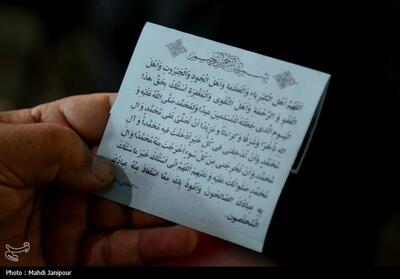 بسم الله الرحمن الرحیم
اَللّهُمَّ اَهْلَ الْکِبْرِیاءِ وَ الْعَظَمَةِ وَ اَهْلَ الْجُودِ وَ الْجَبَرُوتِ وَ اَهْلَ
الْعَفْوِ وَ الرَّحْمَةِ وَ اَهْلَ التَّقْوی وَ الْمَغْفِرَةِ اَسْئَلُکَ بِحَقِّ هذَا
الْیَوْمِ الَّذی جَعَلْتَهُ لِلْمُسْلِمینَ عیداً وَ لِمُحَمَّدٍ صَلَّی اللهُ عَلَیْهِ وَ
الِهِ ذُخْراً وَ شَرَفاً وَ کَرامَةً وَ مَزیْداً اَنْ تُصَلِّیَ عَلی مُحَمَّدٍ وَ الِ
مُحَمَّدٍ وَ اَنْ تُدْخِلَنی فی کُلِّ خَیْرٍ اَدْخَلْتَ فیهِ مُحَمَّداً وَ الَ
مُحَمَّدٍ وَ اَنْ تُخْرِجَنی مِنْ کُلِّ سُوءٍ اَخْرَجْتَ مِنْهُ مُحَمَّداً وَ الَ
مُحَمَّدٍ صَلَواتُکَ عَلَیْهِ وَ عَلَیْهِمْ اَللّهُمَّ اِنّی اَسْئَلُکَ خَیْرَ ما سَئَلَکَ
بِهِ عِبادُکَ الصّالِحُونَ وَ اَعُوذُ بِکَ مِمَّا اسْتَعاذَ مِنْهُ عِبادُکَ
الْمُخْلَصُونَ.
Photo : Mahdi Janipour